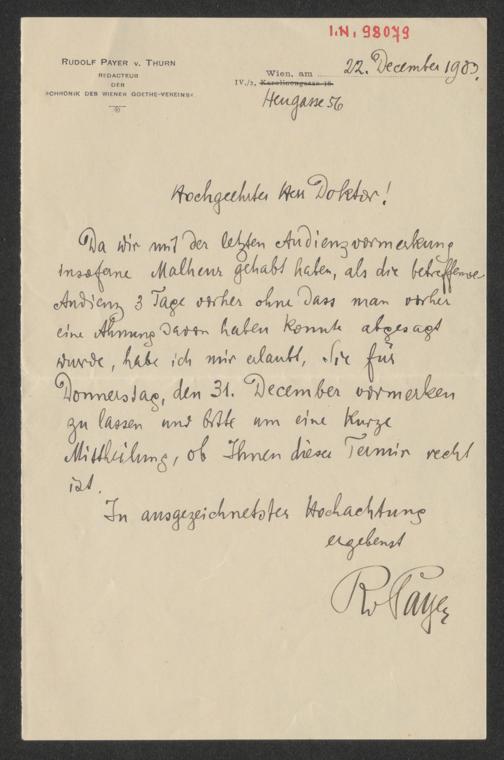 I.N. 98079
RUDOLF PAYER v. THURN
REDACTEUR
DER
»CHRONIK DES WIENER GOETHE-VEREINS«
Wien, am 22. December 1903.
IV./2, Karolinengasse 15
Heugasse 56
Hochgeehrter Herr Doktor!
Da wir mit der letzten Audienzvormerkung
insoferne Malheur gehabt haben, als die betreffende
Audienz 3 Tage vorher ohne dass man vorher
eine Ahnung davon haben konnte abgesagt
wurde, habe ich mir erlaubt, Sie für
Donnerstag, den 31. December vormerken
zu lassen und bitte um eine kurze
Mittheilung, ob Ihnen dieser Termin recht
ist.
In ausgezeichnetster Hochachtung
ergebenst
RvPayer